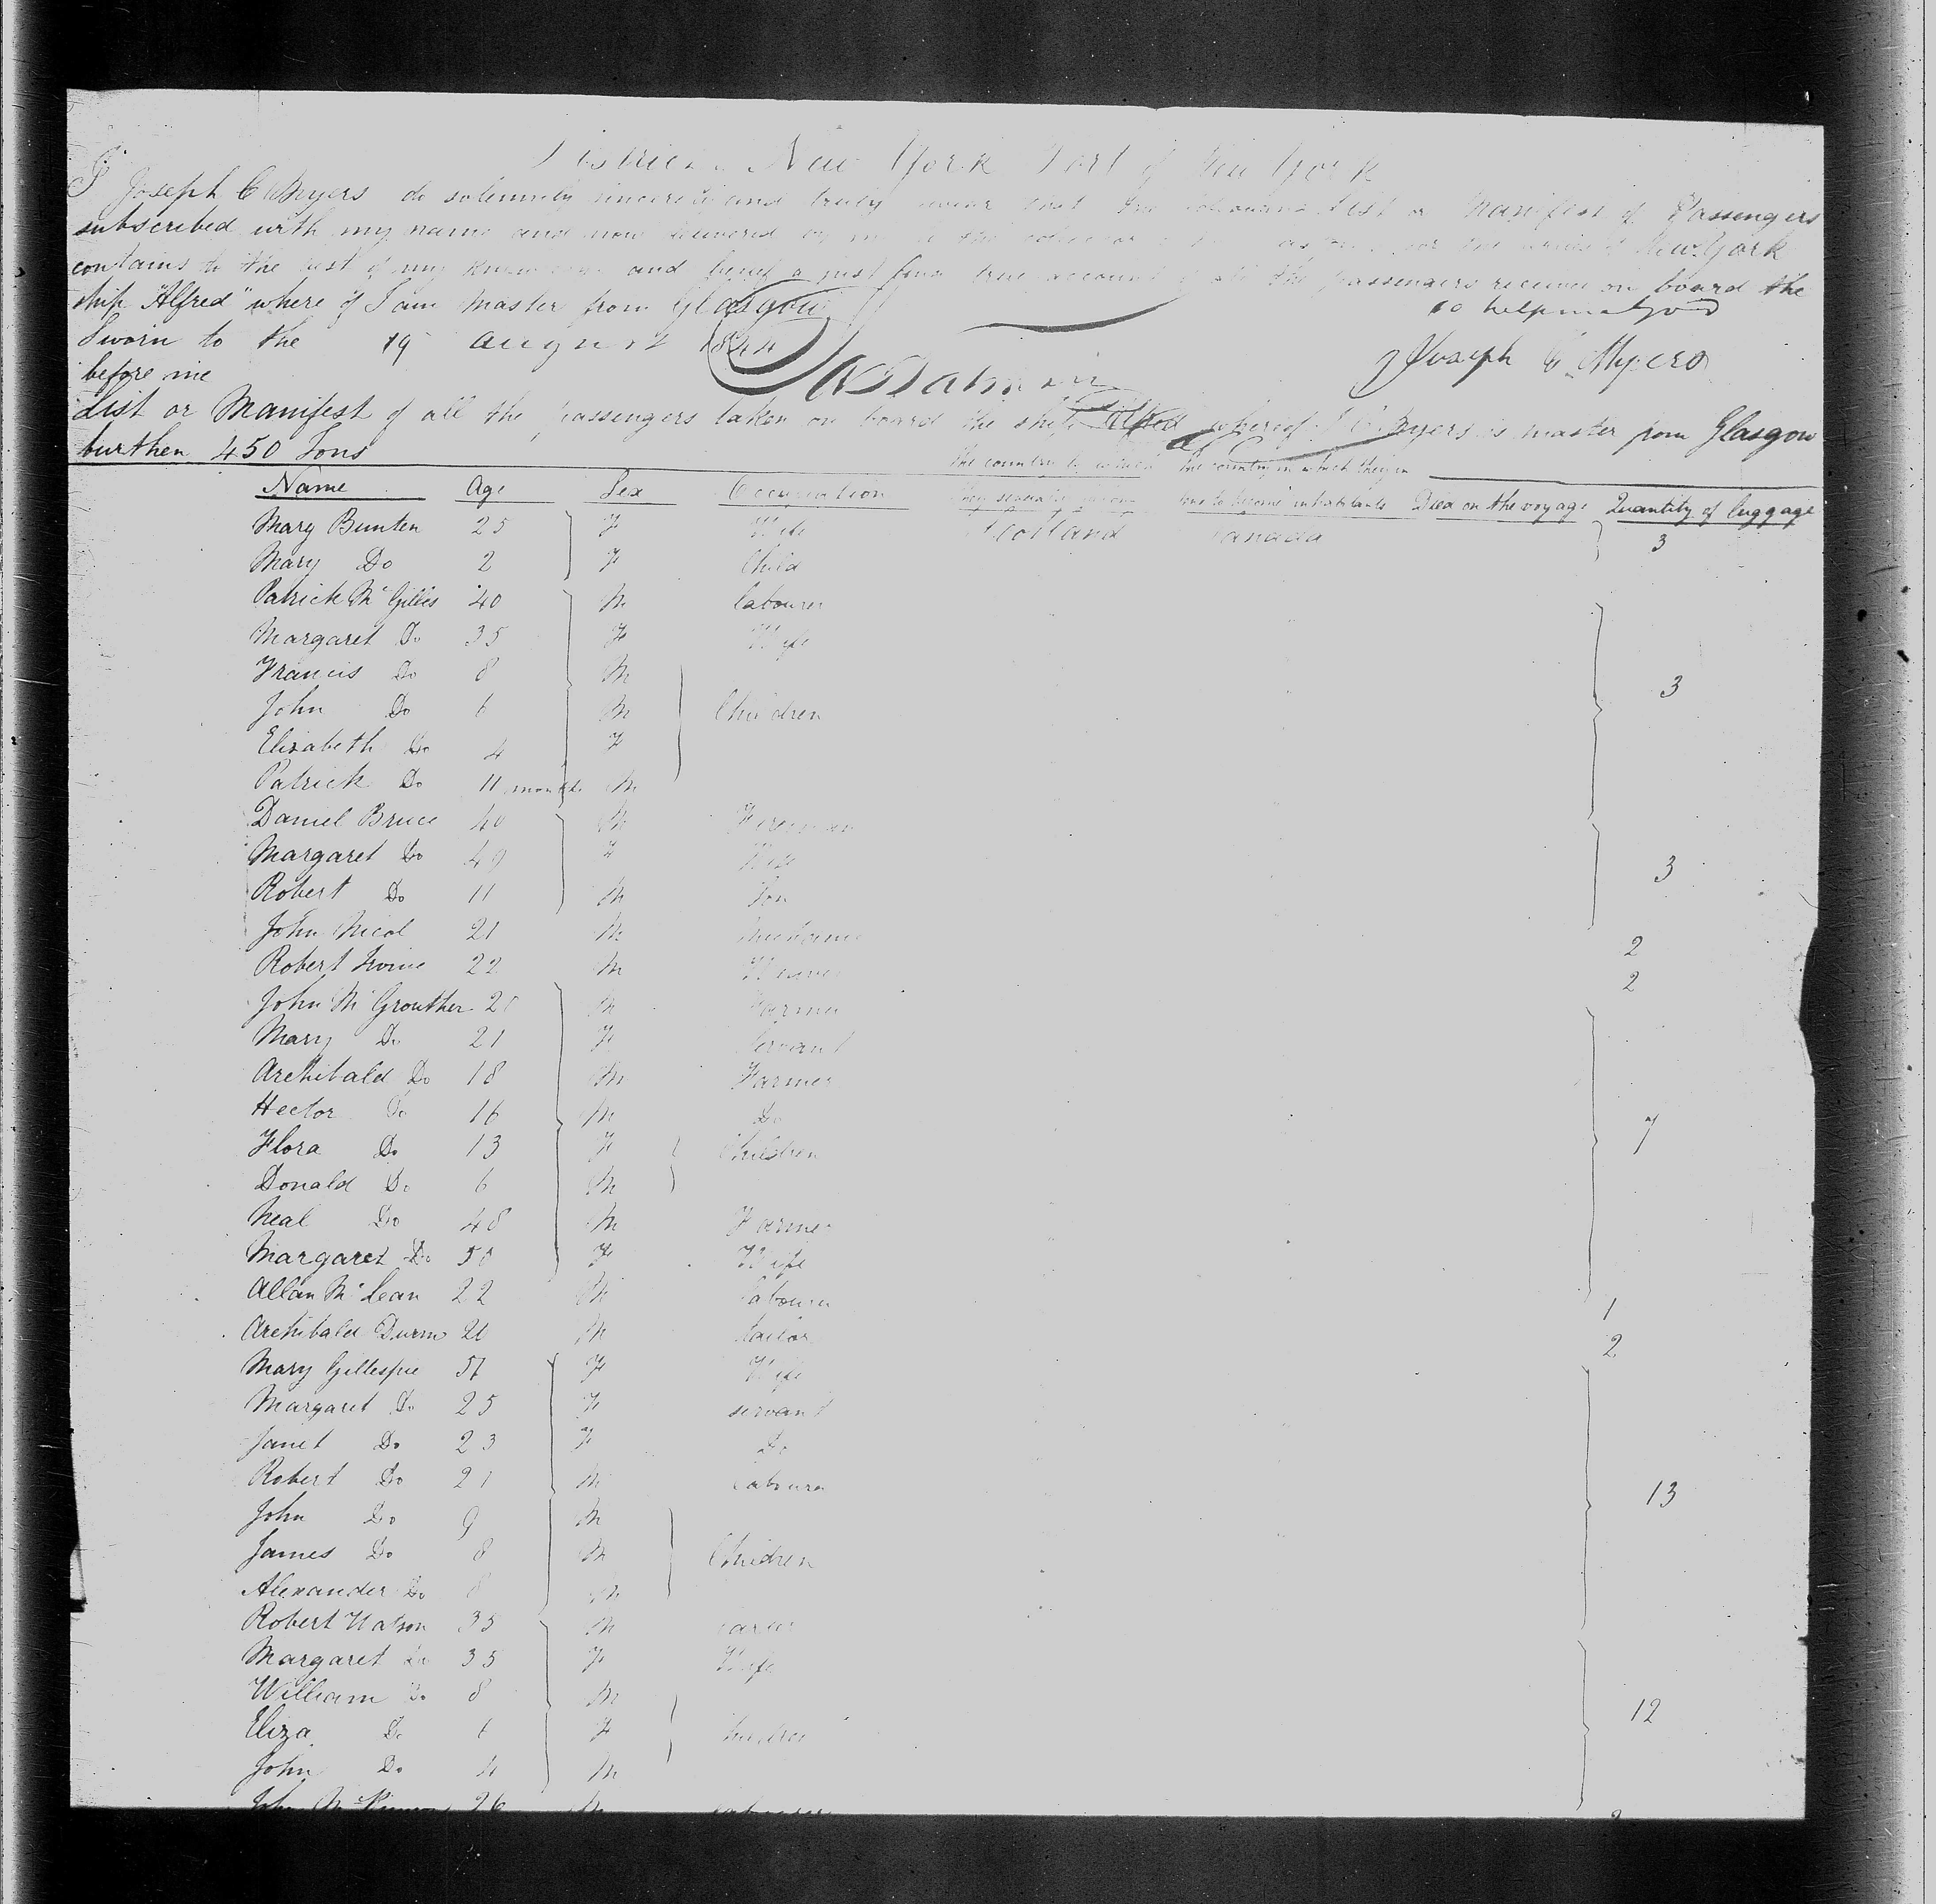 District New York Port of New York
I Joseph C Myers do solemnly sincerely and truly swear that the following List or Manifest of Passengers
subscribed with my name and now delivered by me to the collector of the for the district of New York
contains to the best of my knowledge and belief a just and true account of all the passengers received on board the
ship "Alfred" where of I am Master from Glasgow
so help me God
Sworn to the 19 August 1844
before me
Joseph C Myers
List or Manifest of all the passengers taken on board the ship Alfred whereof J C Myers is master from Glasgow
burthen 450 Tons
Name Age Sex Occupation The country to which they severally belong The country in which they intend to become inhabitants Died on the voyage Quantity of luggage
Mary Bunten 25 F Wife Scotland Canada 3
Mary Do 2 F Child
Patrick McGillis 40 M labourer
Margaret Do 35 F Wife
Francis Do 8 M 3
John Do 6 M Children
Elizabeth Do 4 F
Patrick Do 11 months M
Daniel Bruce 40 M
Margaret Do 49 F Wife 3
Robert Do 11 M Son
John Nicol 21 M mechanic 2
Robert Irvine 22 M Weaver 2
John McGrouther M Farmer
Mary Do 21 F Servant
Archibald Do 18 M Farmer
Hector Do 16 M Do
Flora Do 13 F Children 7
Donald Do 6 M
Neal Do 48 M Farmer
Margaret Do 50 F Wife
Allan McLean 22 M labourer 1
Archibald M tailor 2
Mary Gillespie 57 F Wife
Margaret Do 25 F servant
Janet Do 23 F Do
Robert Do 21 M labourer 13
John Do 9 M
James Do 8 M Children
Alexander Do 8 M
Robert Watson 35 M
Margaret Do 35 F Wife
William Do 8 M 12
Eliza Do 6 F Children
John Do 4 M
John 26 M labourer